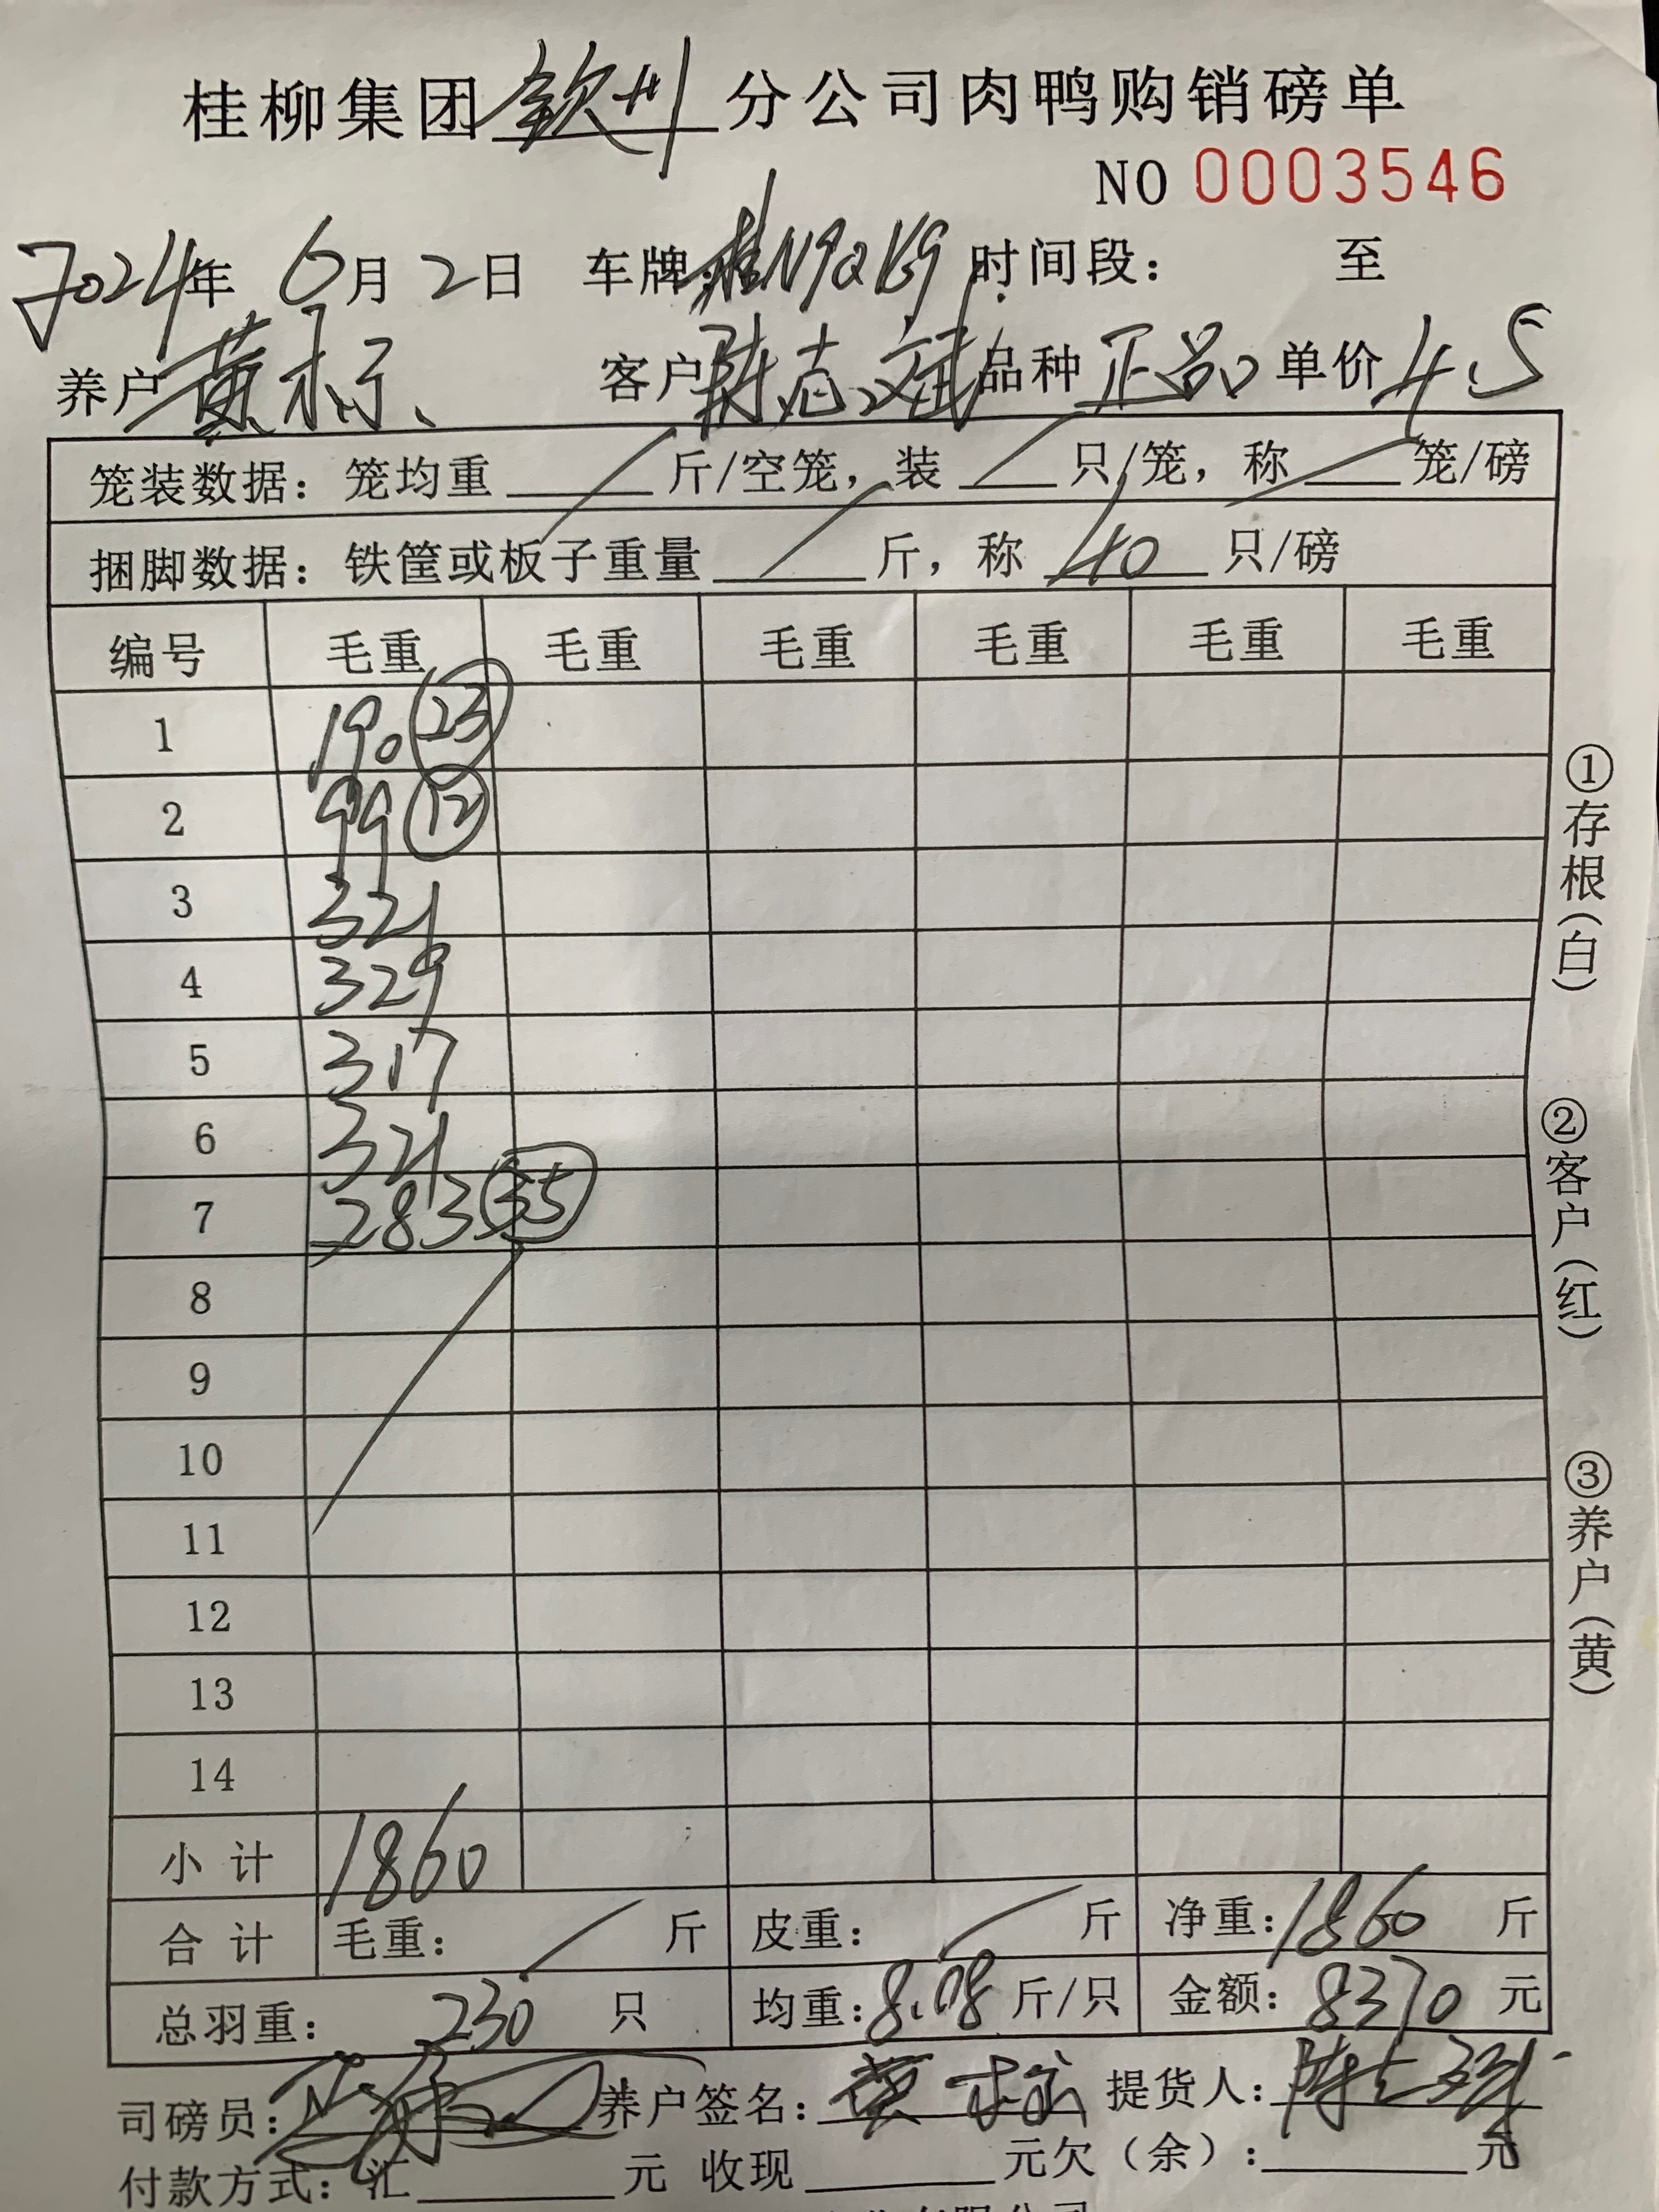 桂柳集团钦州分公司肉鸭购销磅单
NO 0003546
2024年 6月 2日 车牌: 时间段: 至
养户 黄标 客户 陈志斌 品种 正品 单价 4.5
笼装数据: 笼均重 斤/空笼, 装 只/笼, 称 笼/磅
捆脚数据: 铁筐或板子重量 斤, 称 40 只/磅
编号 毛重 毛重 毛重 毛重 毛重 毛重
1 190 23
2 99 12
3 321
4 329
5 317
6 321
7 283 35
8
9
10
11
12
13
14
小计 1860
合计 毛重: 斤 皮重: 斤 净重: 1860 斤
总羽重: 230 只 均重: 8.08 斤/只 金额: 8370 元
司磅员: 养户签名: 黄标 提货人: 陈志斌
付款方式: 汇 元 收现 元欠(余): 元
①存根(白)
②客户(红)
③养户(黄)